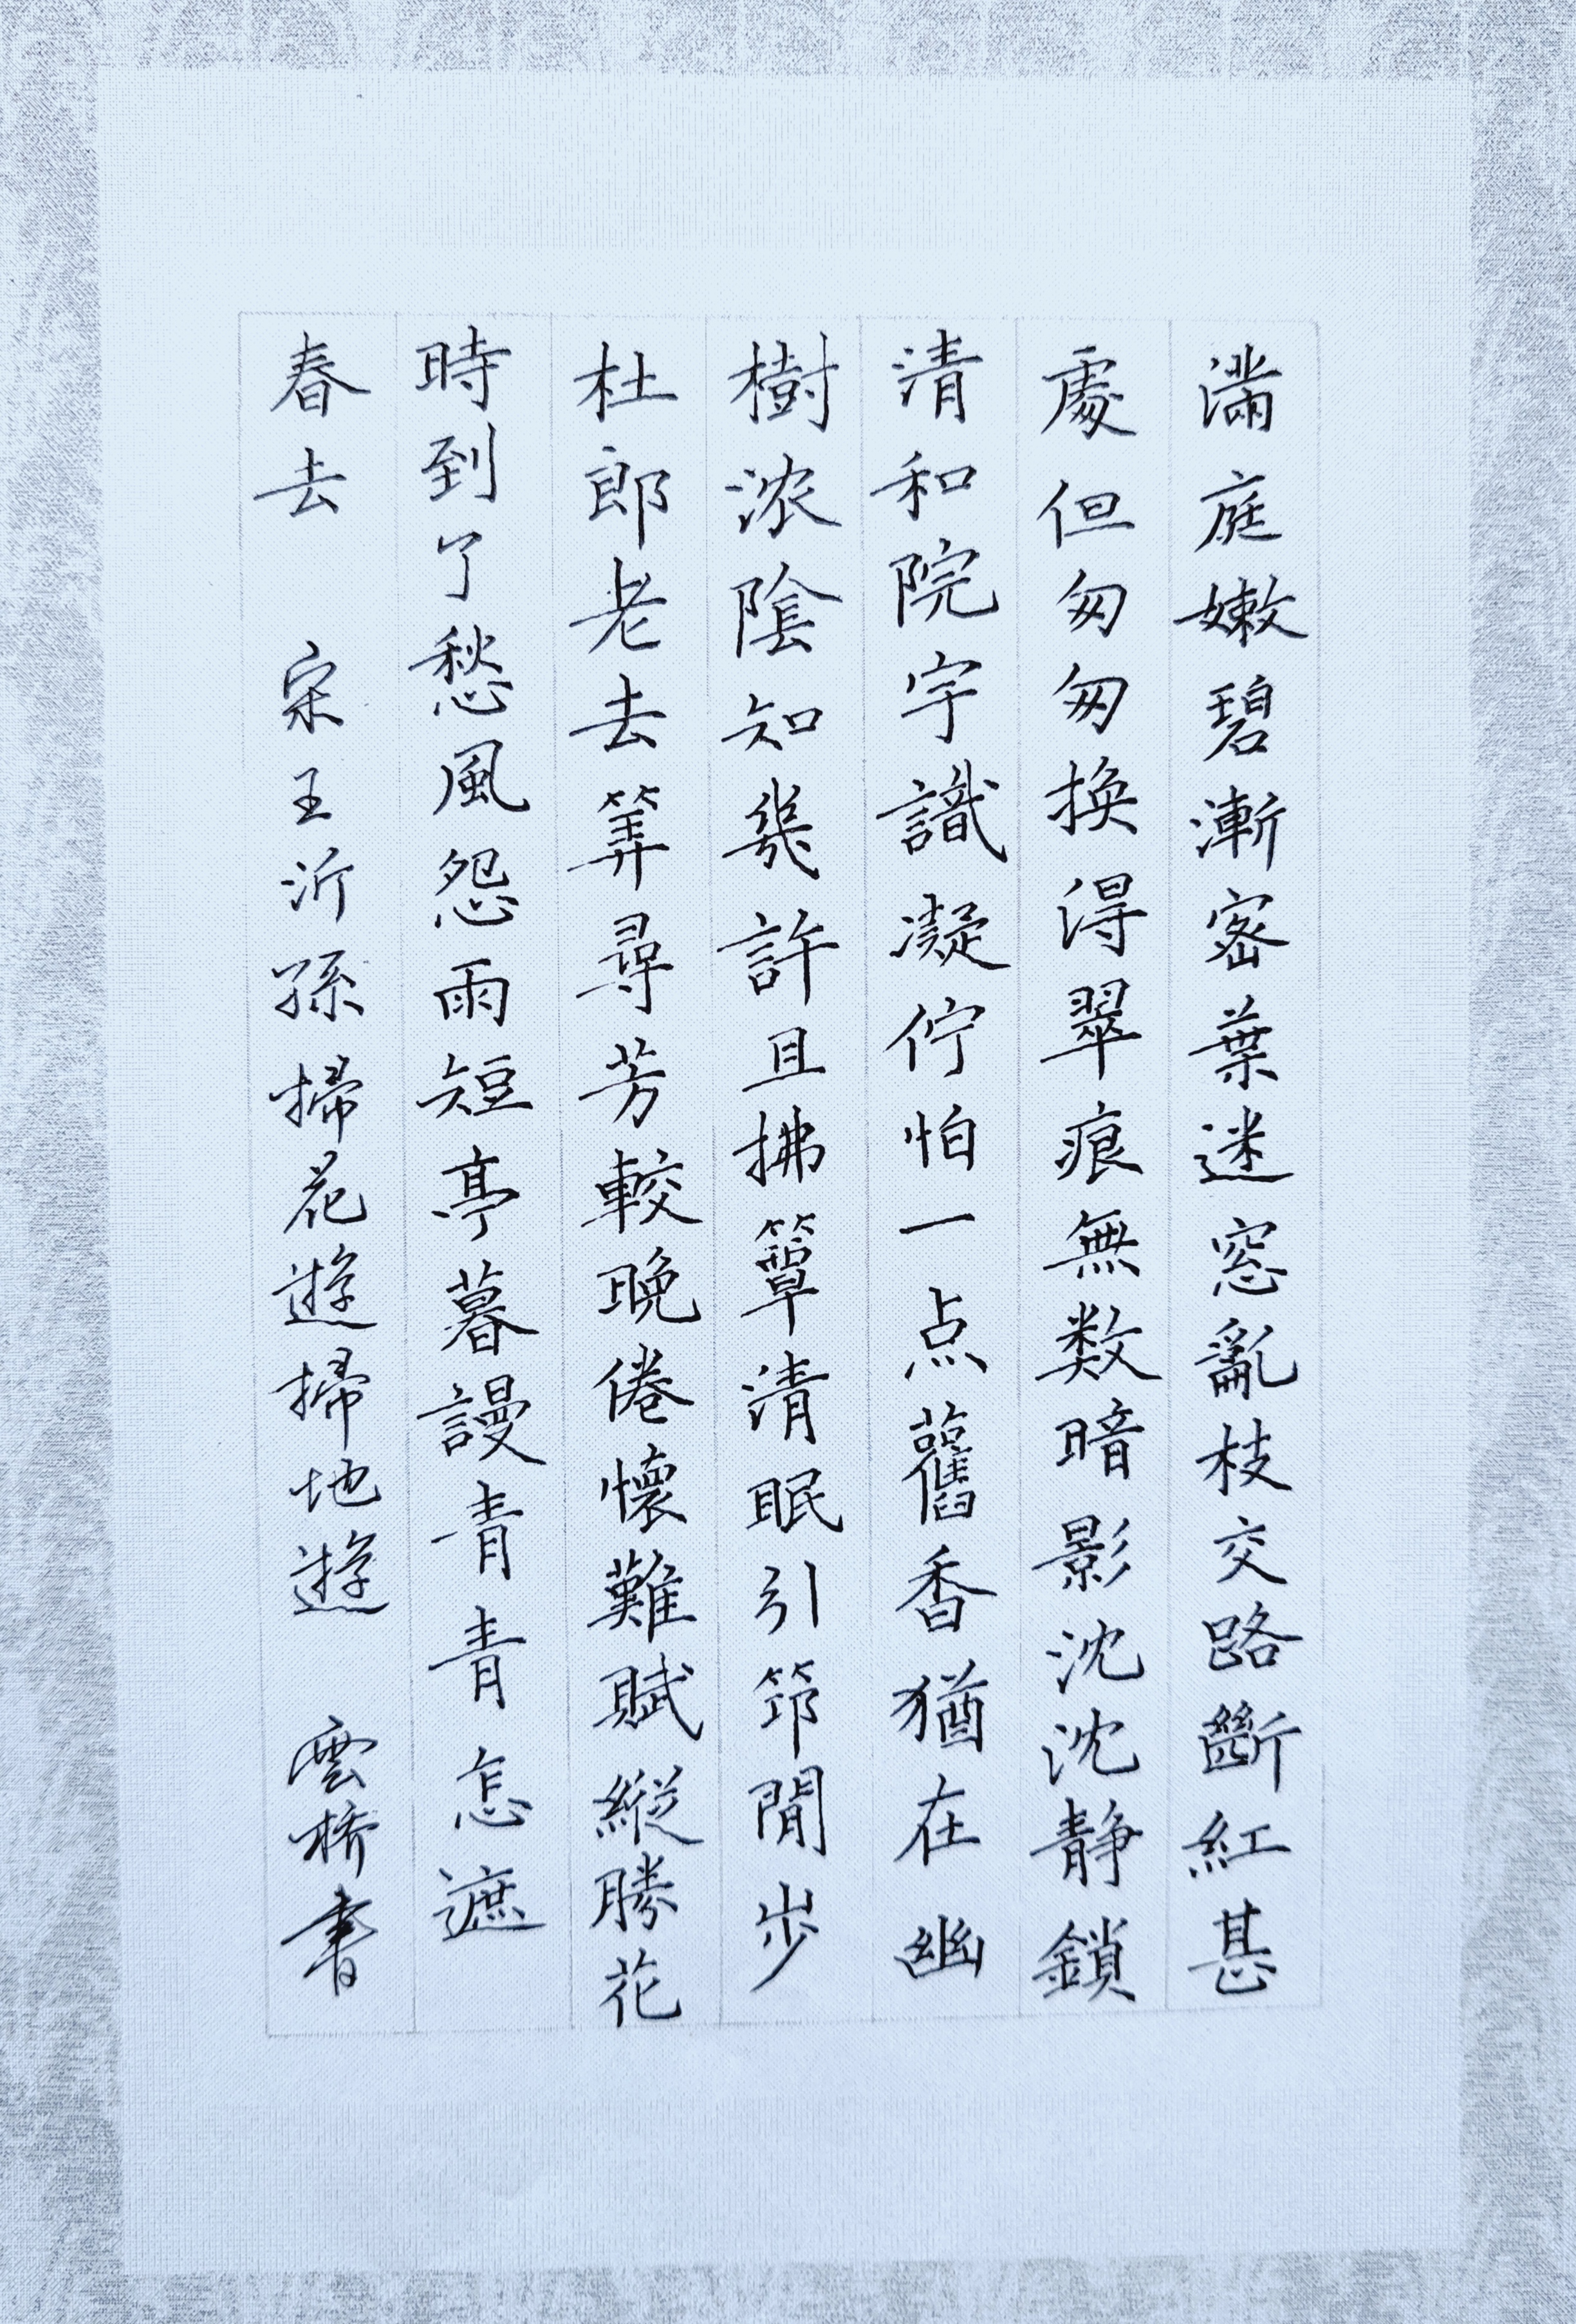 滿庭嫩碧漸密葉迷窓亂枝交路斷紅甚
處但匆匆換得翠痕無数暗影沈沈靜鎖
清和院宇識凝佇怕一点舊香猶在幽
樹浓陰知幾許且拂簟清眠引筇閒步
杜郎老去筭尋芳較晚倦懷難賦縱勝花
時到了愁風怨雨短亭暮謾青青怎遮
春去 宋王沂孫掃花遊掃地遊 雲橋書